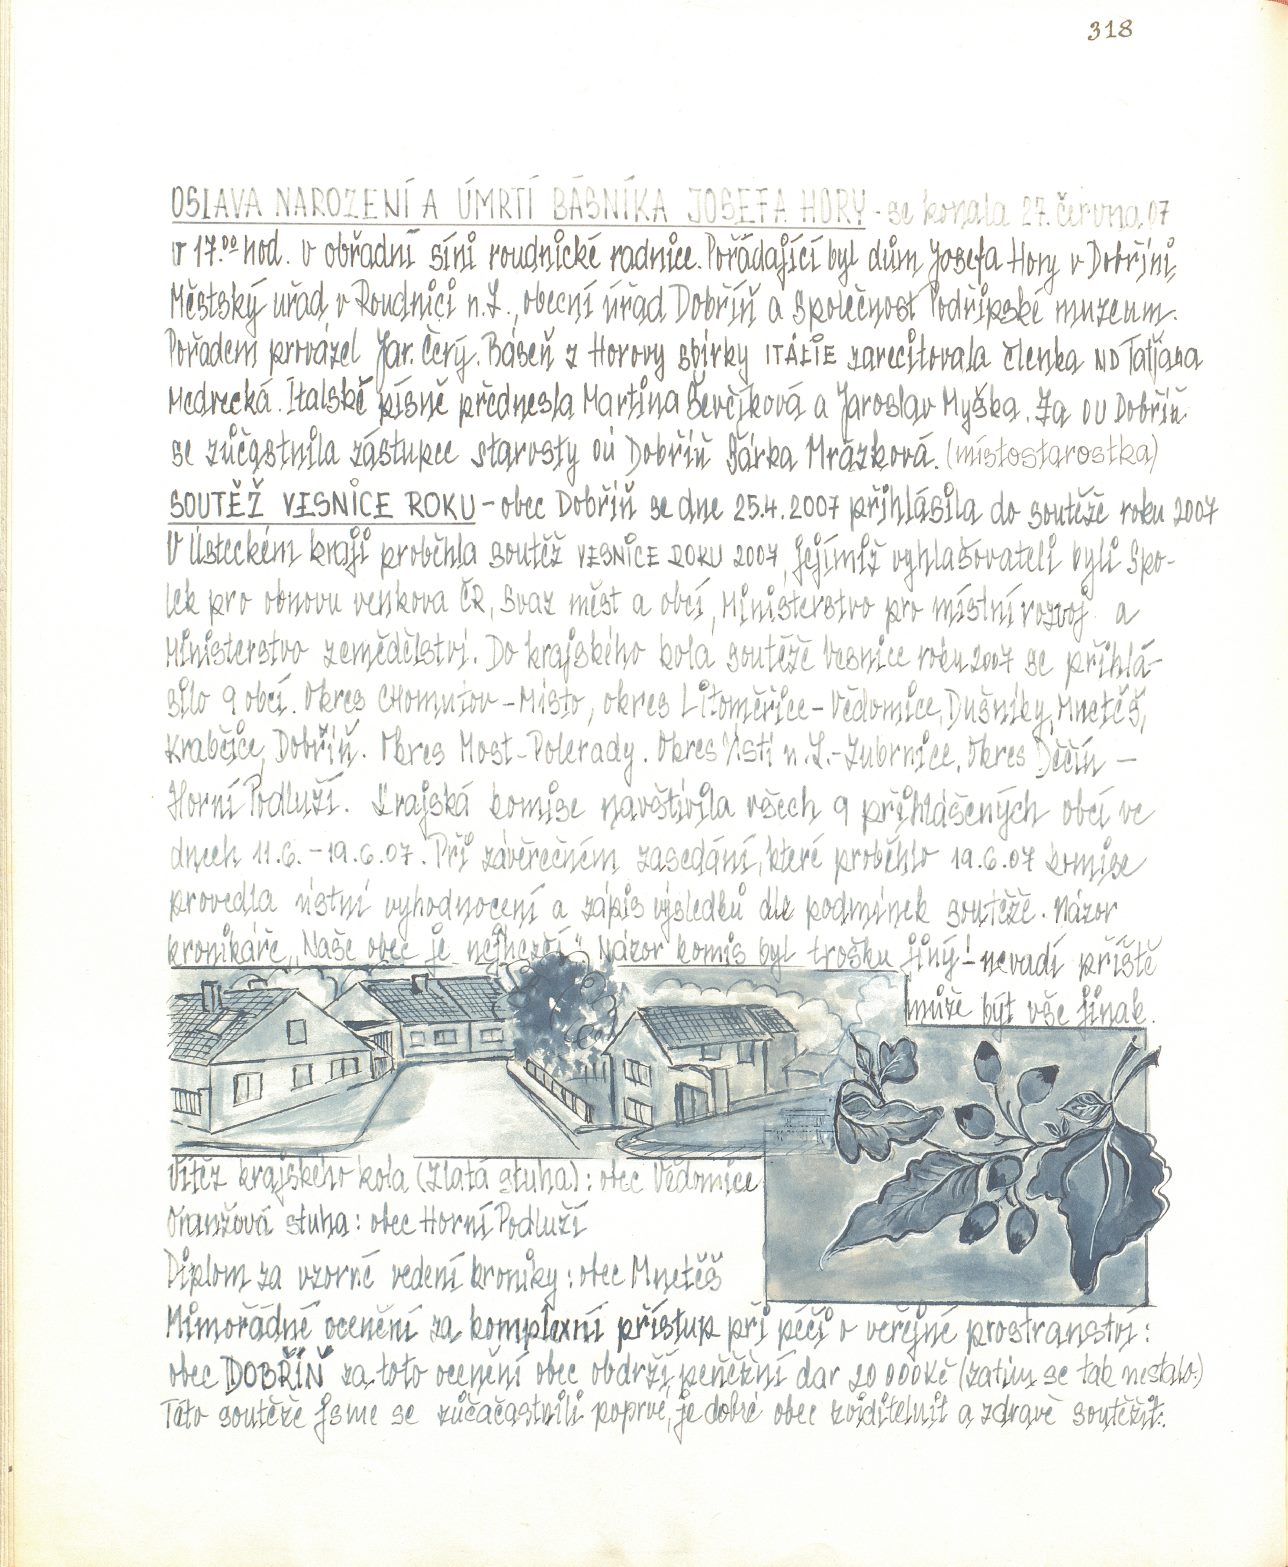 318
OSLAVA NAROZENÍ A ÚMRTÍ BÁSNÍKA JOSEFA HORY - se konala 27. června 07
v 17.00 hod. v obřadní síni roudnické radnice. Pořádající byl dům Josefa Hory v Dobříni,
Městský úřad v Roudnici n.L., obecní úřad Dobříň a Společnost Podřipské muzeum.
Pořadem provázel Jar. Čerý. Báseň z Horovy sbírky ITÁLIE zarecitovala členka ND Taťjana
Medvecká. Italské písně přednesla Martina Ševčíková a Jaroslav Myška. Za OU Dobříň
se zůčastnila zástupce starosty OÚ Dobříň Šárka Mrázková. (místostarostka)
SOUTĚŽ VESNICE ROKU - obec Dobříň se dne 25.4. 2007 přihlásila do soutěže roku 2007
V Ústeckém kraji proběhla soutěž VESNICE ROKU 2007, jejímiž vyhlašovateli byli Spo-
lek pro obnovu venkova ČR, Svaz měst a obcí, Ministerstvo pro místní rozvoj a
Ministerstvo zemědělství. Do krajského kola soutěže Vesnice roku 2007 se přihlá-
silo 9 obcí. Okres Chomutov - Místo, okres Litoměřice - Vědomice, Dušníky, Mnetěš,
Krabčice, Dobříň. Okres Most - Polerady. Okres Ústí n.L. - Zubrnice, Okres Děčín -
Horní Podluží. Krajská komise navštívila všech 9 přihlášených obcí ve
dnech 11.6. - 19.6.07. Při závěrečném zasedání, které proběhlo 19.6.07 komise
provedla ústní vyhodnocení a zápis výsledků dle podmínek soutěže. Názor
kronikáře „Naše obec je nejhezčí“. Názor komis byl trošku jiný! - nevadí příště
může být vše jinak.
Vítěz krajského kola (Zlatá stuha): obec Vědomice
Oranžová stuha: obec Horní Podluží
Diplom za vzorné vedení kroniky: obec Mnetěš
Mimořádné ocenění za komplexní přístup při péči o veřejné prostranství:
obec DOBŘÍŇ za toto ocenění obec obdrží peněžní dar 20 000 Kč (zatím se tak nestalo.)
Této soutěže jsme se zůčačastnili poprvé, je dobré obec zviditelnit a zdravě soutěžit.